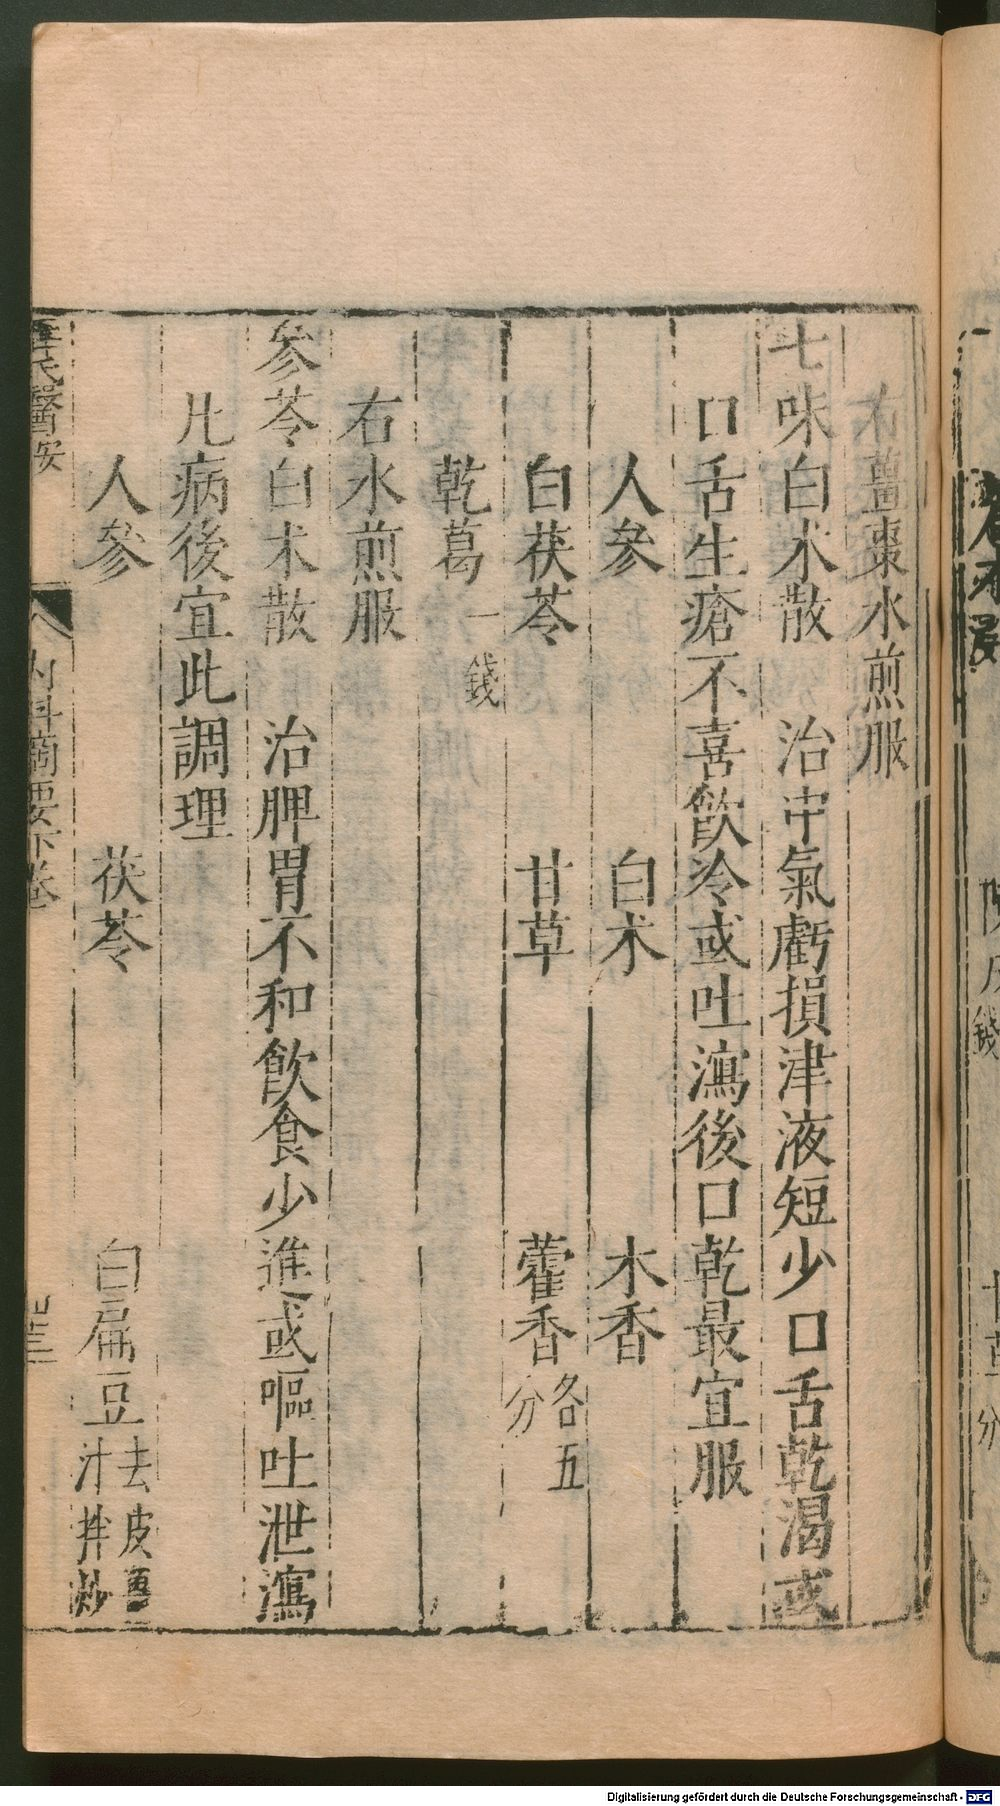 右薑棗水煎服
七味白术散　治中氣虧損津液短少口舌乾渴或
口舌生瘡不喜飲冷或吐瀉後口乾最宜服
人參　白术　木香
白茯苓　甘草　藿香各五分
乾葛一錢
右水煎服
參苓白术散　治脾胃不和飲食少進或嘔吐泄瀉
凡病後宜此調理
人參　茯苓　白扁豆去皮薑汁拌炒
醫按　內科摘要下卷
Digitalisierung gefördert durch die Deutsche Forschungsgemeinschaft - DFG